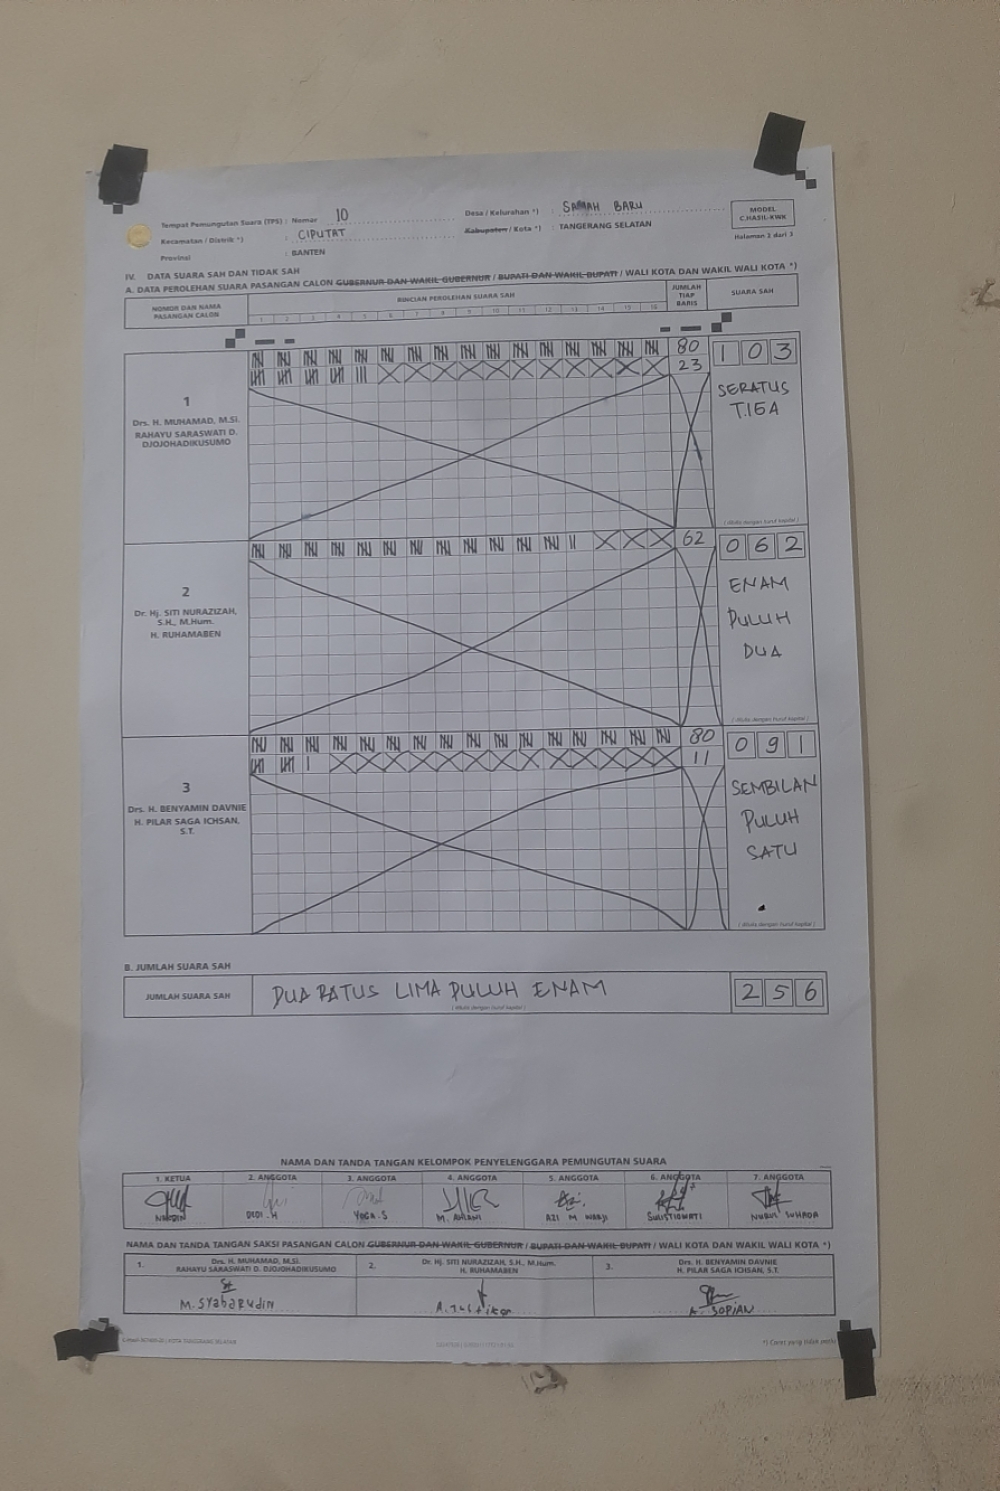 Tempat Pemungutan Suara (TPS) : Nomor 10
Kecamatan / Distrik *) : CIPUTAT
Provinsi : BANTEN
Desa / Kelurahan *) : SAWAH BARU
Kabupaten / Kota *) : TANGERANG SELATAN
MODEL
C.HASIL-KWK
Halaman 2 dari 3
IV. DATA SUARA SAH DAN TIDAK SAH
A. DATA PEROLEHAN SUARA PASANGAN CALON GUBERNUR DAN WAKIL GUBERNUR / BUPATI DAN WAKIL BUPATI / WALI KOTA DAN WAKIL WALI KOTA *)
NOMOR DAN NAMA
PASANGAN CALON
RINCIAN PEROLEHAN SUARA SAH
1 2 3 4 5 6 7 8 9 10 11 12 13 14 15 16
JUMLAH
TIAP
BARIS
SUARA SAH
1
Drs. H. MUHAMAD, M.Si.
RAHAYU SARASWATI D.
DJOJOHADIKUSUMO
80
23
103
SERATUS
TIGA
(ditulis dengan huruf kapital)
2
Dr. Hj. SITI NURAZIZAH,
S.H., M.Hum.
H. RUHAMABEN
62
062
ENAM
PULUH
DUA
(ditulis dengan huruf kapital)
3
Drs. H. BENYAMIN DAVNIE
H. PILAR SAGA ICHSAN,
S.T.
80
11
091
SEMBILAN
PULUH
SATU
(ditulis dengan huruf kapital)
B. JUMLAH SUARA SAH
JUMLAH SUARA SAH
DUA RATUS LIMA PULUH ENAM
(ditulis dengan huruf kapital)
256
NAMA DAN TANDA TANGAN KELOMPOK PENYELENGGARA PEMUNGUTAN SUARA
1. KETUA 2. ANGGOTA 3. ANGGOTA 4. ANGGOTA 5. ANGGOTA 6. ANGGOTA 7. ANGGOTA
DEDI .H YOGA.S SULISTIOWATI
NAMA DAN TANDA TANGAN SAKSI PASANGAN CALON GUBERNUR DAN WAKIL GUBERNUR / BUPATI DAN WAKIL BUPATI / WALI KOTA DAN WAKIL WALI KOTA *)
1. Drs. H. MUHAMAD, M.Si.
RAHAYU SARASWATI D. DJOJOHADIKUSUMO
2. Dr. Hj. SITI NURAZIZAH, S.H., M.Hum.
H. RUHAMABEN
3. Drs. H. BENYAMIN DAVNIE
H. PILAR SAGA ICHSAN, S.T.
M. Syabarudin
A. SOPIAN
KOTA TANGERANG SELATAN
*) Coret yang tidak perlu